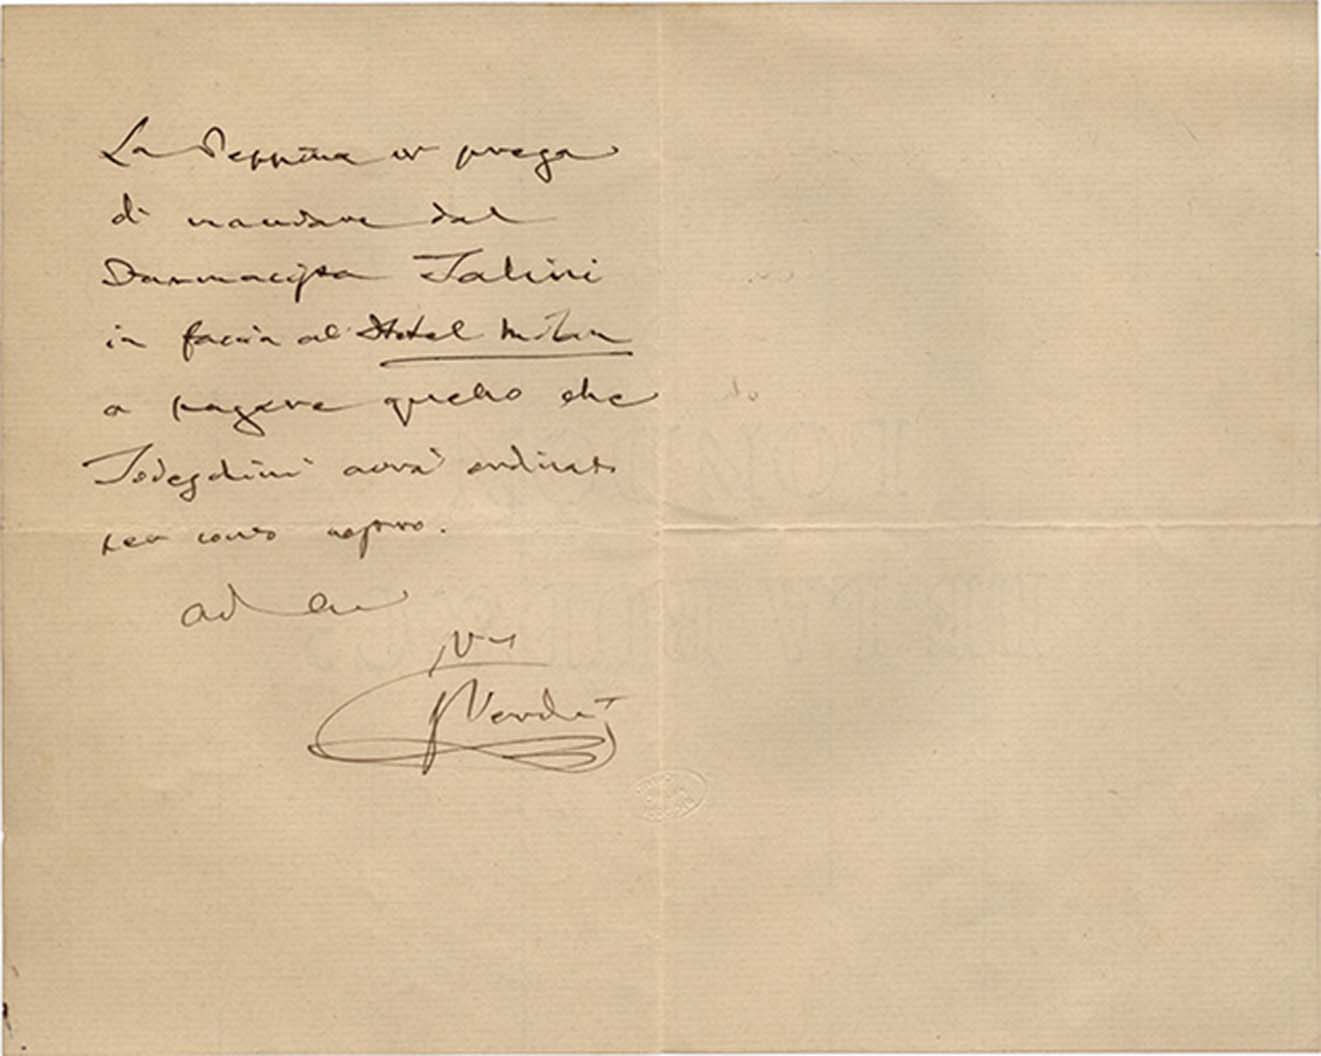 La Peppina vi prega
di mandare dal
Farmacista Talini
in faccia al Hotel Milan
a pagare quello che
Tedeschini avrà ordinato
per conto nostro.
Addio
G Verdi